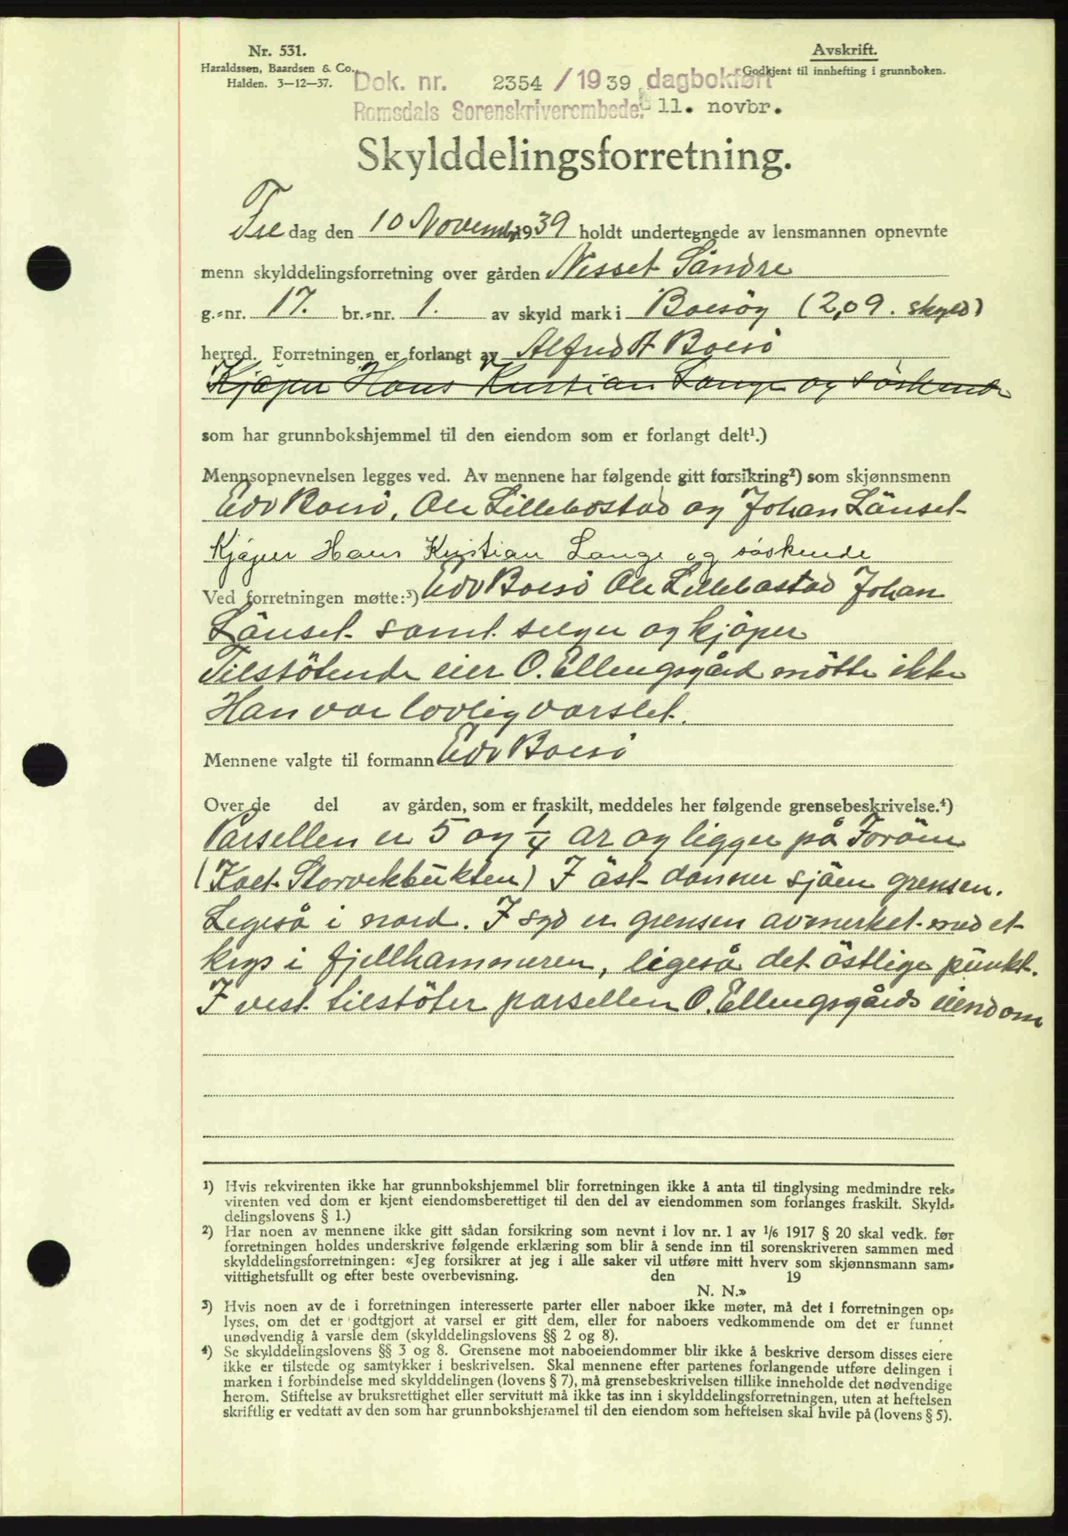 Nr. 531.
Haraldssen, Baardsen & Co.,
Halden. 3—12—37.
Avskrift.
Godkjent til innhefting i grunnboken.
Dok. nr. 2354 / 1939 dagbokført
Romsdals Sorenskriverembede. 11. novbr.
Skylddelingsforretning.
Fre dag den 10 Novembr 1939 holdt undertegnede av lensmannen opnevnte
menn skylddelingsforretning over gården Nesset Söndre
g.=nr. 17. br.=nr. 1. av skyld mark i Bolsöy (2,09. skyld)
herred. Forretningen er forlangt av Alfred A Bolsö
Kjöper Hans Kristian Lange og söskende
som har grunnbokshjemmel til den eiendom som er forlangt delt¹.)
Mennsopnevnelsen legges ved. Av mennene har følgende gitt forsikring²) som skjønnsmenn
Edv Bolsö, Ole Lillebostad og Johan Länset
Kjöper Hans Kristian Lange og söskende
Ved forretningen møtte:³) Edv Bolsö Ole Lillebostad Johan
Länset samt selger og kjöper
Tilstötende eier O. Ellingsgård mötte ikke
Han var lovlig varslet.
Mennene valgte til formann Edv Bolsö
Over de del av gården, som er fraskilt, meddeles her følgende grensebeskrivelse.⁴)
Parsellen er 5 og 1/4 ar og ligger på
I öst danner sjöen grensen.
Ligeså i nord. I syd er grensen avmerket med et
krys i fjellhammeren, ligeså det östlige punkt.
I vest tilstöter parsellen O. Ellingsgårds eiendom
¹) Hvis rekvirenten ikke har grunnbokshjemmel blir forretningen ikke å anta til tinglysing medmindre rek=
virenten ved dom er kjent eiendomsberettiget til den del av eiendommen som forlanges fraskilt. Skyld=
delingslovens § 1.)
²) Har noen av mennene ikke gitt sådan forsikring som nevnt i lov nr. 1 av 1/6 1917 § 20 skal vedk. før
forretningen holdes underskrive følgende erklæring som blir å sende inn til sorenskriveren sammen med
skylddelingsforretningen: «Jeg forsikrer at jeg i alle saker vil utføre mitt hverv som skjønnsmann sam=
vittighetsfullt og efter beste overbevisning. den 19
N. N.»
³) Hvis noen av de i forretningen interesserte parter eller naboer ikke møter, må det i forretningen op=
lyses, om det er godtgjort at varsel er gitt dem, eller for naboers vedkommende om det er funnet
unødvendig å varsle dem (skylddelingslovens §§ 2 og 8).
⁴) Se skylddelingslovens §§ 3 og 8. Grensene mot naboeiendommer blir ikke å beskrive dersom disses eiere
ikke er tilstede og samtykker i beskrivelsen. Skal mennene efter partenes forlangende utføre delingen i
marken i forbindelse med skylddelingen (lovens § 7), må grensebeskrivelsen tillike inneholde det nødvendige
herom. Stiftelse av bruksrettighet eller servitutt må ikke tas inn i skylddelingsforretningen, uten at heftelsen
skriftlig er vedtatt av den som har grunnbokshjemmel til den eiendom som heftelsen skal hvile på (lovens § 5).